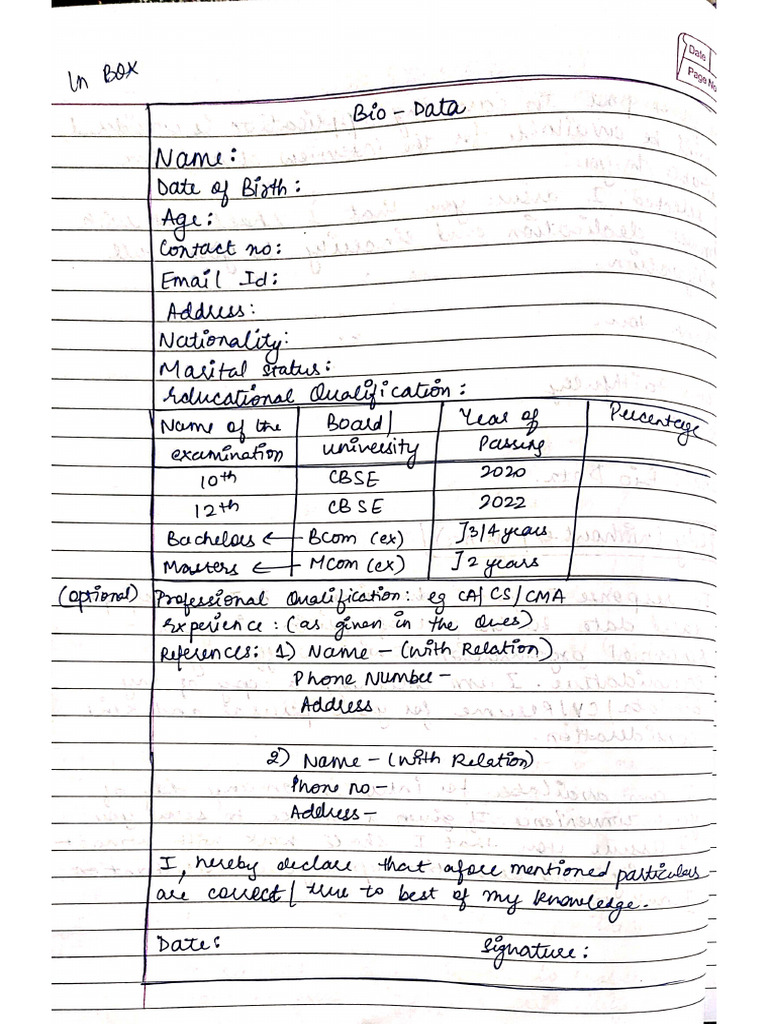 Date
Page No
In BOX
Bio - Data
Name:
Date of Birth:
Age:
Contact no:
Email Id:
Address:
Nationality:
Marital Status:
Educational Qualification:
Name of the examination | Board/ university | Year of Passing | Percentage
10th | CBSE | 2020
12th | CBSE | 2022
Bachelors ← BCom (ex) | ]3/4 years
Masters ← MCom (ex) | ]2 years
(optional) Professional Qualification: eg CA/CS/CMA
Experience: (as given in the Ques)
References: 1) Name - (with Relation)
Phone Number -
Address
2) Name - (with Relation)
Phone no -
Address -
I, hereby declare that afore mentioned particulars
are correct/ true to best of my knowledge.
Date: Signature: